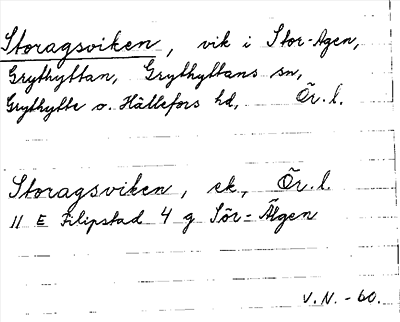 Storagsviken, vik i Stor-Agen,
Grythyttan, Grythyttans sn,
Grythytte o. Hällefors hd, Ör. l.
Storagsviken, ek., Ör. l.
11 E Filipstad 4 g Sör-Älgen
V.N. -60.